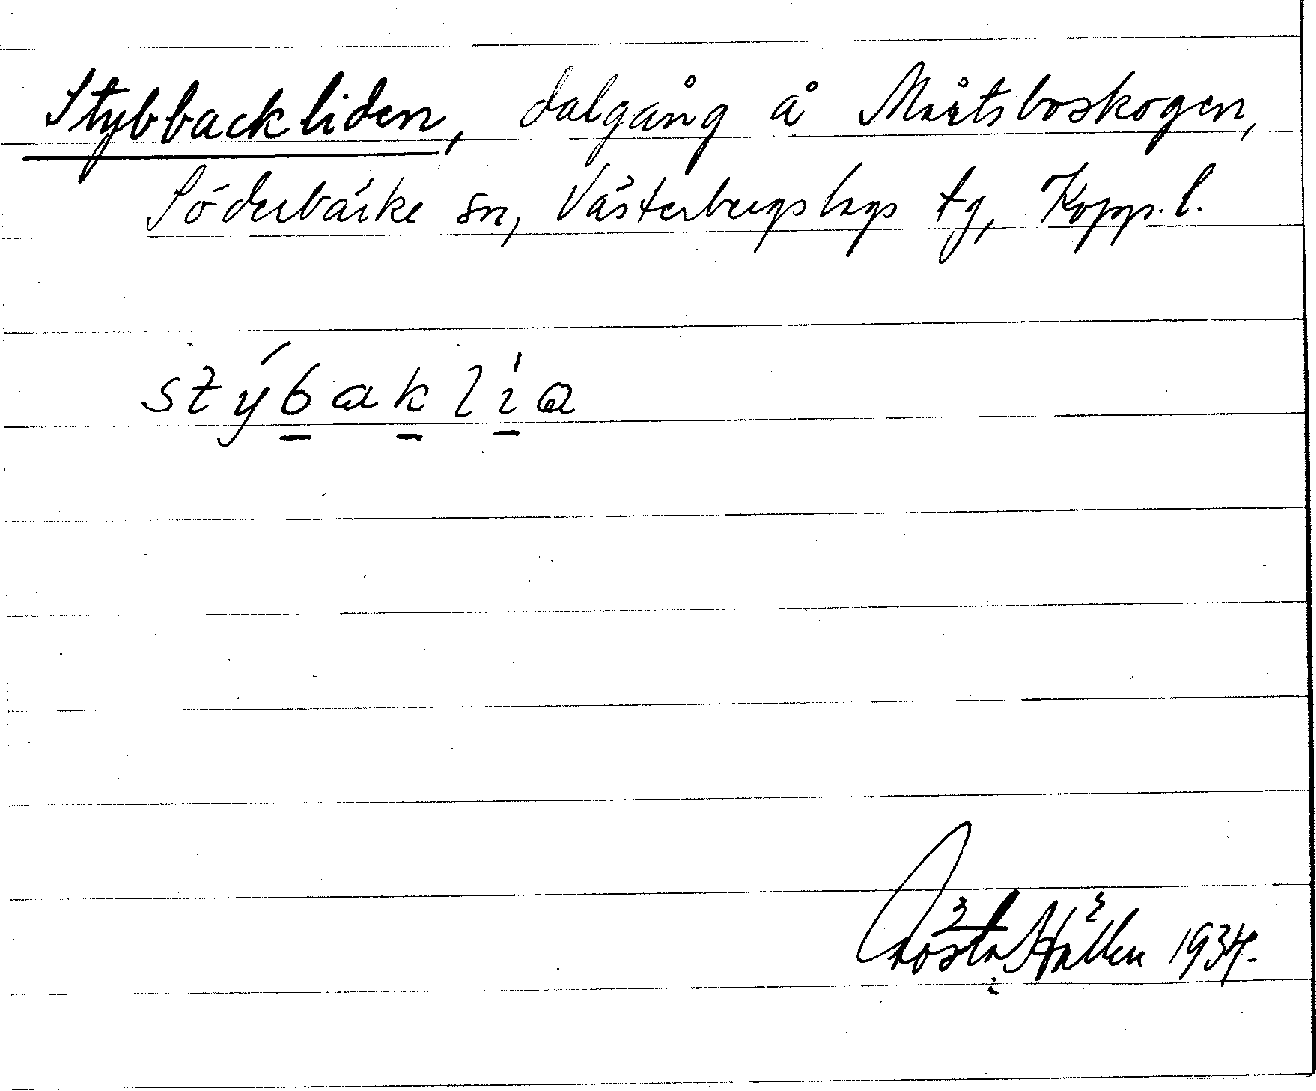 Stybbackliden, dalgång å Mårtsboskogen,
Söderbärke sn, Västerbergslags tg, Kopp. l.
stýbaklia
Gösta Hållen 1934.